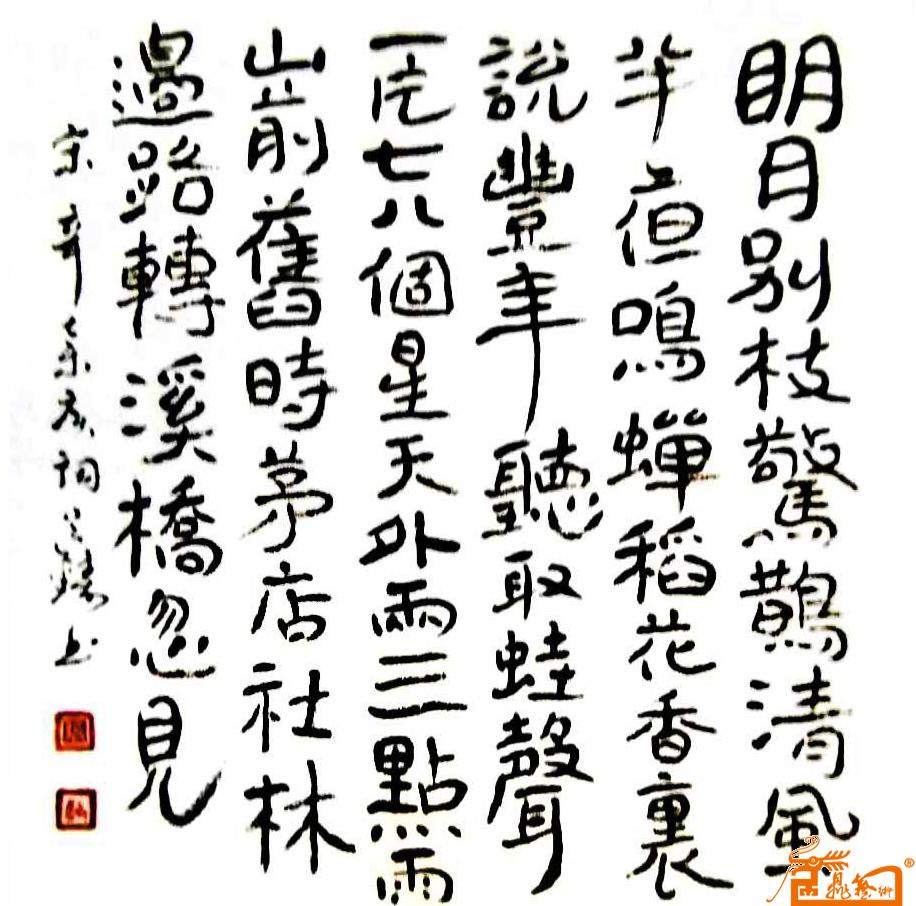 明月别枝驚鵲清風
半夜鳴蟬稻花香裏
說豐年聽取蛙聲
一片七八個星天外兩三點雨
山前舊時茅店社林
邊路轉溪橋忽見
宋辛弃疾詞书